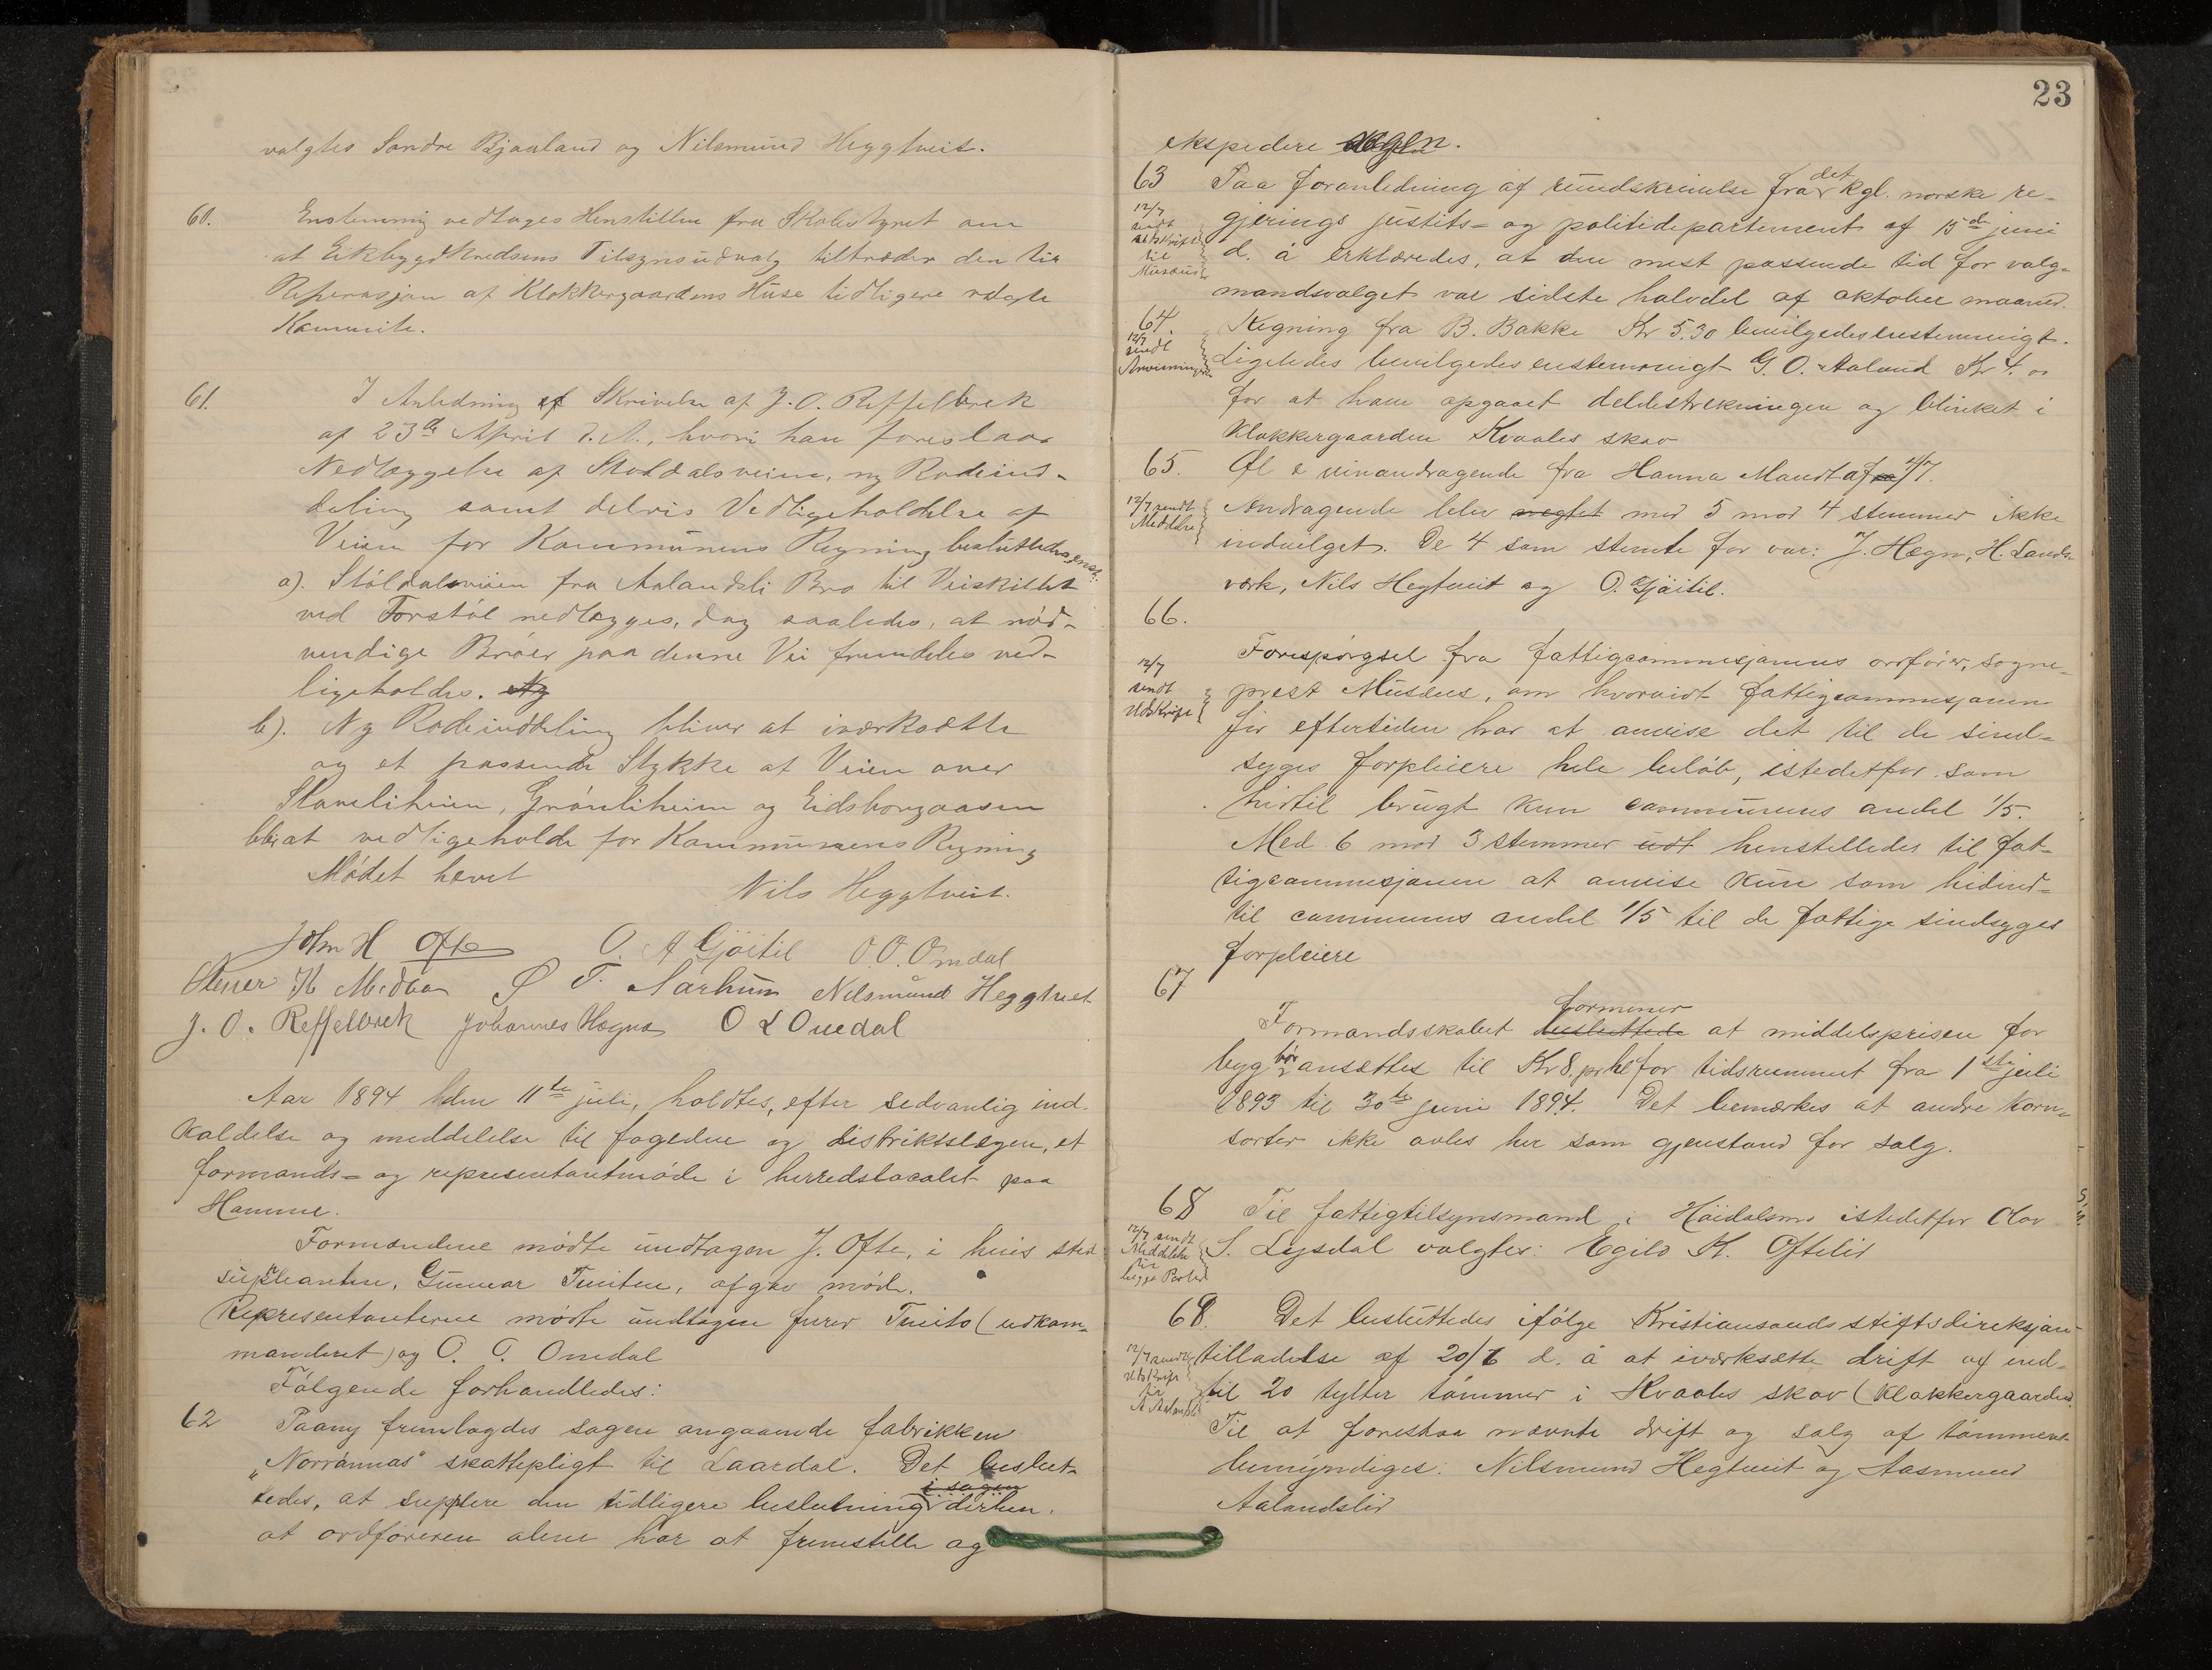 valgtes Sondre Bjaaland og Nilsmund Heggtveit.
60. Enstemmig vedtages Henstillen fra Skolestyret om
at Eikbygdkredsens Tilsynsudvalg tiltræder den til
Reperasjon af Klokkergaardens Huse tidligere valgte
Kommite.
61. I Anledning af Skrivelse af J. O. Reffelbrek
af 23de April d. A., hvori han foreslaar
Nedlæggelse af Støldalsveien, ny Rodeind-
deling samt delvis Vedligeholdelse af
Veien for Kommunens Regning besluttedes enst:
a). Støldalsveien fra Aalandsli Bro til Veiskillet
ved Forstøl nedlægges, dog saaledes, at nød-
vendige Broer paa denne Vei fremdeles ved-
ligeholdes. Ny
b). Ny Rodeinddeling bliver at iværksætte
og et passende Stykke af Veien over
Stavliheien, Grønliheien og Eidsborgaasen
bli at vedligeholde for Kommunens Regning
Mødet hævet
Nils Heggtveit.
John H Ofte O. A Gjøitil O. O. Omdal
Stener H. Midbøen T. Aarhum Nilsmund Heggtveit
J. O. Reffelbrek Johannes Hægna O L Omdal
Aar 1894 den 11te juli, holdtes, efter sedvanlig ind-
kaldelse og meddelelse til fogeden og distriktslægen, et
formands- og representantmøde i herredslocalet paa
Hamme.
Formændene mødte undtagen J. Ofte, i hvis sted
supleanten, Gunnar Tveiten, afgav møde.
Representanterne mødte undtagen furer Tveito (udkom-
manderet) og O. O. Omdal
Følgende forhandledes:
62 Paany fremlagdes sagen angaaende fabrikken
„Norrønnas" skattepligt til Laardal. Det beslut-
i sagen
tedes, at suplere den tidligere beslutning derhen,
at ordføreren alene har at fremstille og
23
ekspedere sagen.
63 Paa foranledning af rundskrivelse fra det kgl. norske re-
gjerings justits- og politidepartement af 15de juni
12/7 sendt udskrift til Musæus
d. å erklæredes, at den mest passende tid for valg-
mandsvalget var sidste halvdel af oktober maaned.
64. Regning fra B. Bakke Kr 5.30 bevilgedes enstemmigt.
12/7 sendt Anvisning
Ligeledes bevilgedes enstemmigt G. O. Aaland Kr 4. 00
for at have opgaaet deldestrekningen og blinket i
Klokkergaarden Kvaales skov
65. Øl & vinandragende fra Hanna Mandt af 4/7.
12/7 sendt Meddelse
Andragende blev negtet med 5 mod 4 stemmer ikke
indvilget. De 4 som stemte for var: J. Hægn, H. Lands-
værk, Nils Hegtveit og O. Gjøitil.
66.
Forespørgsel fra fattigcommesjonens ordfører, sogne-
12/7 sendt Udskrift
prest Musæus, om hvorvidt fattigcommesjonen
for eftertiden har at anvise det til de sind-
syges forpleiere hele beløb, istedetfor som
hidtil brugt kun communens andel 1/5.
Med 6 mod 3 stemmer udt henstilledes til fat-
tigcommesjonen at anvise kun som hidind-
til communens andel 1/5 til de fattige sindsyges
forpleiere
67
formener
Formandsskabet besluttede at middelsprisen for
byg bør ansættes til Kr 8. pr hl for tidsrummet fra 1ste juli
1893 til 30te juni 1894. Det bemærkes at andre korn-
sorter ikke avles her som gjenstand for salg.
68 Til fattigtilsynsmand i Høidalsmo istedetfor Olav
12/7 sendt Meddelse til begge Parter
S. Lysdal valgtes: Egild K. Oftelid
69. Det besluttedes ifølge Kristiansands stiftsdireksjon
12/7 sendt Udskrift til A Aalandslid
tilladelse af 20/6 d. å at iværksætte drift af ind-
til 20 tylter tømmer i Kvaales skov (Klokkergaarden
Til at forestaa nævnte drift og salg af tømmeret
bemyndiges: Nilsmund Hegtveit og Aasmund
Aalandslid